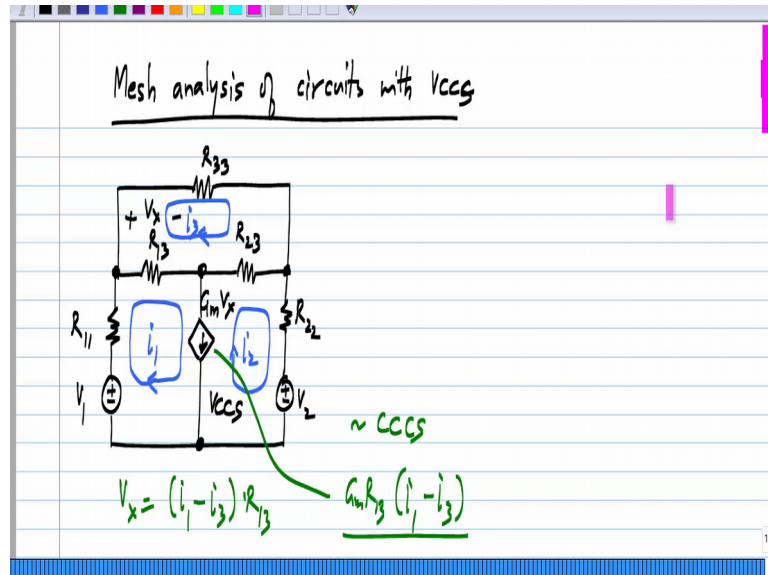 Mesh analysis of circuits with VCCS
R33
+ Vx -
i3
R13
R23
GmVx
R11
R22
i1
i2
V1
VCCS
V2
~ CCCS
Vx = (i1-i3) R13
GmR13 (i1-i3)
1